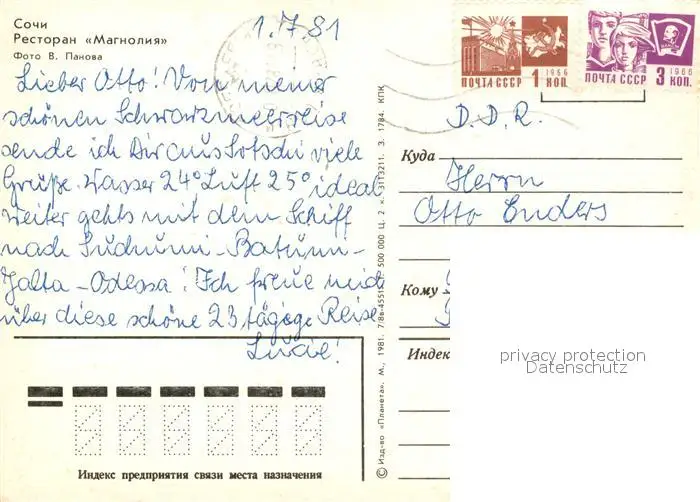 Сочи
Ресторан «Магнолия»
Фото В. Панова
1.7.81
Lieber Otto! Von meiner
schönen Schwarzmeerreise
sende ich Dir aus Sotschi viele
Grüße. Wasser 24° Luft 25° ideal
weiter gehts mit dem Schiff
nach Suchumi-Batumi-
Jalta-Odessa! Ich freue mich
über diese schöne 23 tägege Reise
Lucie!
Индекс предприятия связи места назначения
© Изд-во «Планета». М., 1981. 7/86-4551 500 000 Ц. 2 к. 3113211. З. 1784. КПК
ПОЧТА СССР 1 КОП. 1966
ПОЧТА СССР 3 КОП. 1966
D.D.R.
Куда
Herrn
Otto Enders
Кому
Индек
privacy protection
Datenschutz